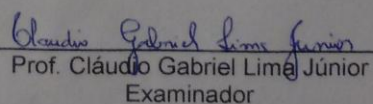 Claudio Gabriel Lima Junior
Prof. Cláudio Gabriel Lima Júnior
Examinador